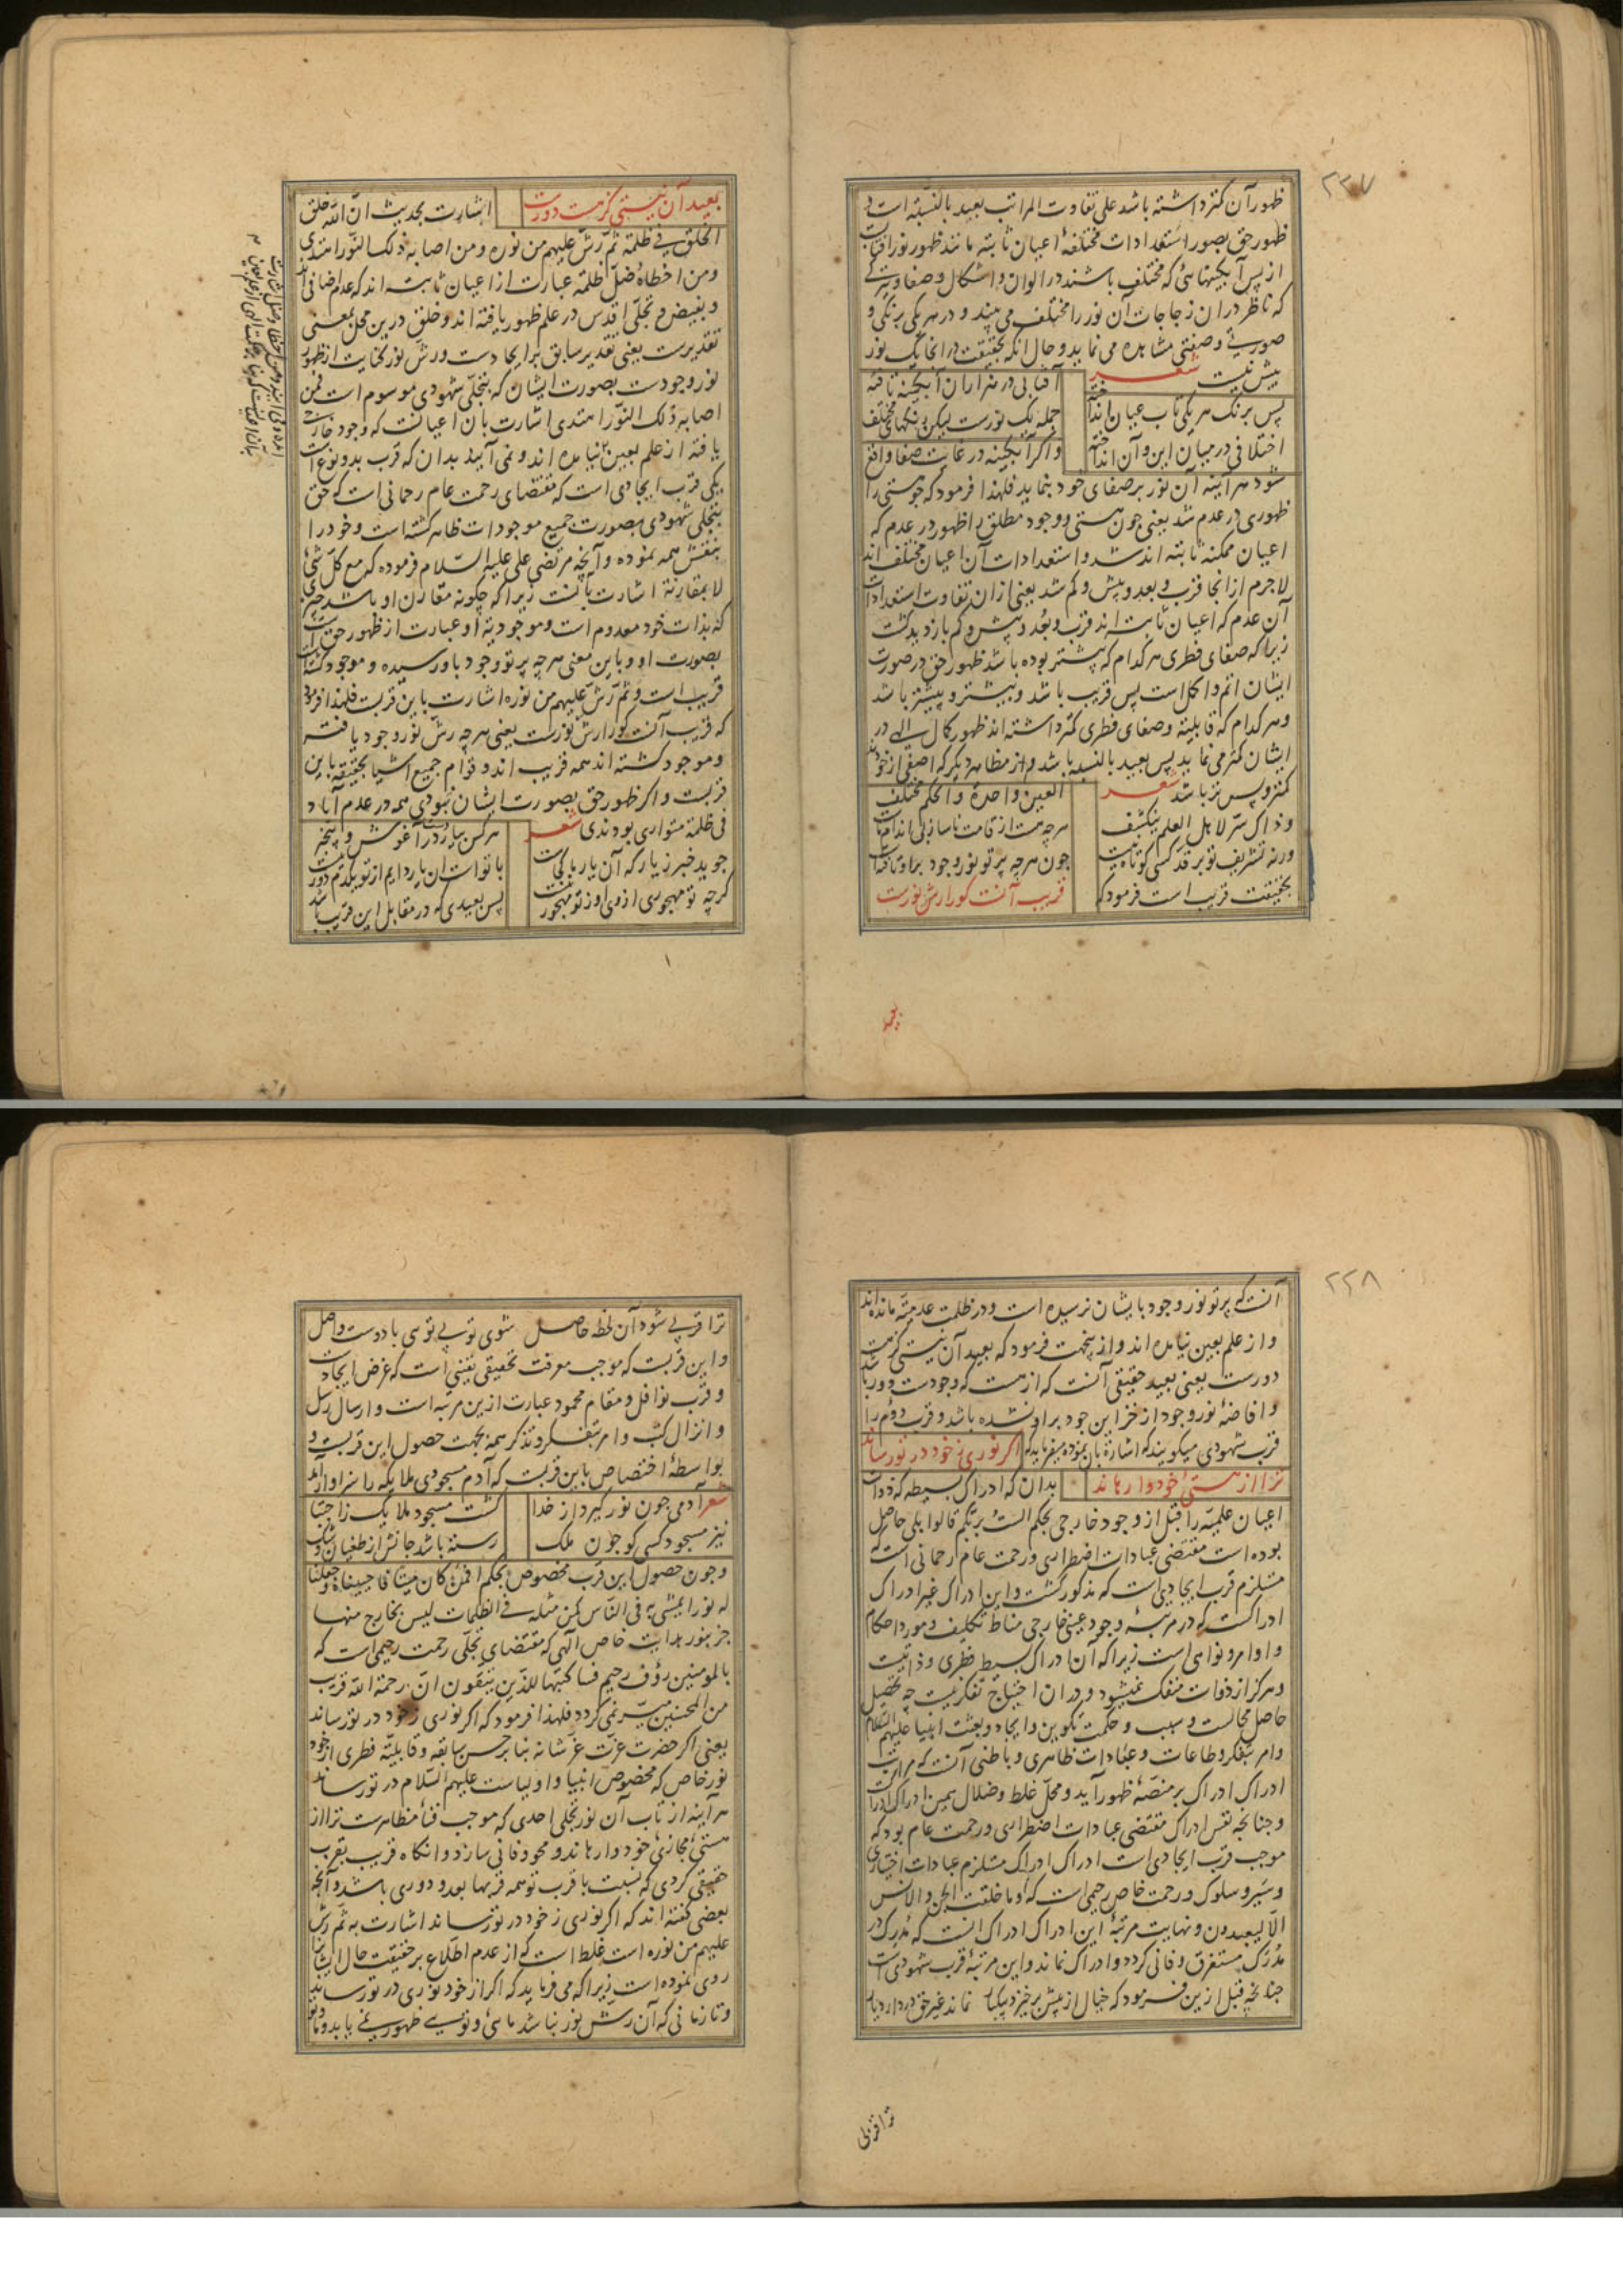 ۲۲۷
ظهور آن کمتر داشته باشد علی تفاوت المراتب بعید بالنسبه است و
ظهور حق بصور استعدادات مختلفهٔ اعیان ثابته مانند ظهور نور آفتاب
از پس آبکینهائی که مختلف باشند در الوان و اشکال و صفا و تیرکی
که ناظر در ان زجاجات آن نور را مختلف می بیند و در هر یکی برنکی و
صورتی و صفتی مشاهده می نماید و حال آنکه بحقیقت در انجا یک نور
بیش نیست شعر آفتابی در هزاران آبکینه تافته
پس برنک هر یکی تاب عیان انداخته جمله یک نورست لیکن رنکهای مختلف
اختلافی در میان این و آن انداخته و اکر آبکینه در غایت صفا واقع
شود هر آینه آن نور بر صفای خود بنماید فلهذا فرمود که چو هستی را
ظهوری در عدم شد یعنی چون هستی و وجود مطلق را ظهور در عدم که
اعیان ممکنه ثابته اند شد و استعدادات آن اعیان مختلف اند
لاجرم از انجا قرب و بعد و بیش و کم شد یعنی از ان تفاوت استعدادات
آن عدم که اعیان ثابته اند قرب و بُعد و بیش و کم باز دید کشت
زیرا که صفای فطری هر کدام که بیشتر بوده باشد ظهور حق در صورت
ایشان اتم و اکمل است پس قریب باشد و بیشتر و پیشتر باشد
و هر کدام که قابلیة و صفای فطری کمتر داشته اند ظهور کمال الهی در
ایشان کمتر می نماید پس بعید بالنسبه باشد و از مظاهر دیکر که اصفی از خودند
کمتر و پس تر باشد شعر العین واحدة والحکم مختلف
وذاک سرّ لاهل العلم ینکشف هر چه هست از قامت ناساز بی اندام ماست
ورنه تشریف تو بر قد کسی کوتاه نیست چون هر چه پرتو نور وجود بر او تافته است
بحقیقت قریب است فرمود که قریب آنست کورا رش نورست
بعید
بعید آن نیستی کز هست دورست اشارت بحدیث انّ الله خلق
الخلق فی ظلمة ثم رشّ علیهم من نوره ومن اصابه ذلک النور اهتدی
ومن اخطاه ضلّ ظلمة عبارت از اعیان ثابته اند که عدم اضافی اند
و بفیض و تجلّی اقدس در علم ظهور یافته اند و خلق درین محل بمعنی
تقدیرست یعنی تقدیر سابق بر ایجادست و رش نور کنایت از ظهور
نور وجودست بصورت ایشان که بتجلّی شهودی موسوم است فمن
اصابه ذلک النّور اهتدی اشارت بآن اعیانست که وجود خارجی
یافته از علم بعین نیامده اند و نمی آیند بدان که قرب بدو نوع است
یکی قرب ایجادی است که مقتضای رحمت عام رحمانی است که حق
بتجلّی شهودی بصورت جمیع موجودات ظاهر کشته است و خود را
بنقش همه نموده و آنچه مرتضی علی علیه السّلام فرموده که مع کلّ شئ
لا بمقارنة اشارت بآنست زیرا که چکونه مقارن او باشد چیزی
که بذات خود معدوم است و موجودیة او عبارت از ظهور حق است
بصورت او و باین معنی هر چه پرتو وجود باو رسیده و موجود کشته است
قریب است و ثم رشّ علیهم من نوره اشارت باین قربست فلهذا فرمود
که قریب آنست کورا رش نورست یعنی هر چه رشّ نور وجود یافته
و موجود کشته اند همه قریب اند و قوام جمیع اشیا بحقیقة باین
قربست و اکر ظهور حق بصورت ایشان نبودی همه در عدم آباد
فی ظلمة متواری بودندی شعر هر کس بیارد در آغوش و پنجبر
جوید خبر ز یار که آن یار ما کجاست با تو است ان یار دایم از تو یکدم دور نیست
کرچه تو مهجوری از وی او ز تو مهجور نیست پس بعیدی که در مقابل این قرب باشد
۲۲۸
آنست که پرتو نور وجود بایشان نرسیده است و در ظلمت عدمیّة مانده اند
و از علم بعین نیامده اند و از ینجهت فرمود که بعید آن نیستی کز هست
دورست یعنی بعید حقیقی آنست که از هست که وجودست دور باشد
و افاضهٔ نور وجود از خزاین جود بر او نشده باشد و قرب دوّم را
قرب شهودی میکویند که اشارة بان نموده میفرماید که اکر نوری ز خود در تو رساند
ترا از هستیٔ خود وا رهاند بدان که ادراک بسیطه که ذوات
اعیان علمیّه را قبل از وجود خارجی بحکم الست بربّکم قالوا بلی حاصل
بوده است مقتضی عبادات اضطراری و رحمت عام رحمانی است که
مستلزم قرب ایجادیست که مذکور کشت و این ادراک غیر ادراک
ادراکست که در مرتبهٔ وجود عینی خارجی مناط تکلیف و مورد احکام
و اوامر و نواهی است زیرا که آن ادراک بسیط فطری و ذاتیست
و هرکز از ذوات منفک نمیشود و در ان احتیاج تفکر نیست چه تحصیل
حاصل محالست و سبب و حکمت تکوین و ایجاد و بعثت انبیا علیهم السّلام
و امر بتفکر و طاعات و عبادات ظاهری و باطنی آنست که مراتب
ادراک ادراک بر منصّهٔ ظهور آید و محلّ غلط و ضلال همین ادراک ادراکست
و چنانچه نفس ادراک مقتضی عبادات اضطراری و رحمت عام بود که
موجب قرب ایجادی است ادراک ادراک مستلزم عبادات اختیاری
و سیر و سلوک و رحمت خاص رحیمی است که وما خلقت الجن والانس
الّا لیعبدون و نهایت مرتبهٔ این ادراک ادراک انست که مُدرِک در
مُدرَک مستغرق و فانی کردد و ادراک نماند و این مرتبهٔ قرب شهودی است
چنانچه قبل ازین فرمود که خیال از پیش برخیزد بیکبار نماند غیر حق در دار دیار
ترا قربی
ترا قربی شود آن لحظه حاصل شوی تو بی توی با دوست واصل
و این قربست که موجب معرفت تحقیقی یقینی است که غرض ایجادست
و قرب نوافل و مقام محمود عبارت ازین مرتبه است و ارسال رسل
و انزال کتب و امر بتفکر و تذکر همه بجهت حصول این قربست و
بواسطهٔ اختصاص باین قربست که آدم مسجودی ملایکه را سزاوار آمد
شعر آدمی چون نور کیرد از خدا کشت مسجود ملایک ز اجتبا
نیز مسجود کسی کو چون ملک رسته باشد جانش از طغیان و شک
و چون حصول این قرب مخصوص بحکم افمن کان میتا فاحییناه وجعلنا
له نورا یمشی به فی النّاس کمن مثله فی الظلمات لیس بخارج منها
جز بنور هدایت خاص الهی که مقتضای تجلّی رحمت رحیمی است که
بالمومنین رؤف رحیم فساکتبها للذین یتقون انّ رحمة الله قریب
من المحسنین میسّر نمی کردد فلهذا فرمود که اکر نوری ز خود در تو رساند
یعنی اکر حضرت عزّت عزّ شانه بنا بر حسن سابقه و قابلیّة فطری از خود
نور خاص که مخصوص انبیا و اولیاست علیهم السّلام در تو رساند
هر آینه از تاب آن نور تجلی احدی که موجب فناء مظاهرست ترا از
هستیٔ مجازیٔ خود وا رهاند و محو و فانی سازد و انکاه قریب بقرب
حقیقی کردی که نسبت با قرب تو همه قربها بعد و دوری باشد و آنچه
بعضی کفته اند که اکر نوری ز خود در تو رساند اشارت به ثم رش
علیهم من نوره است غلط است که از عدم اطّلاع بر حقیقت حال ایشانرا
روی نموده است زیرا که می فرماید که اکر از خود نوری در تو رساند
و تا زمانی که آن رش نور نباشد مائی و توئی ظهور نمی یابد